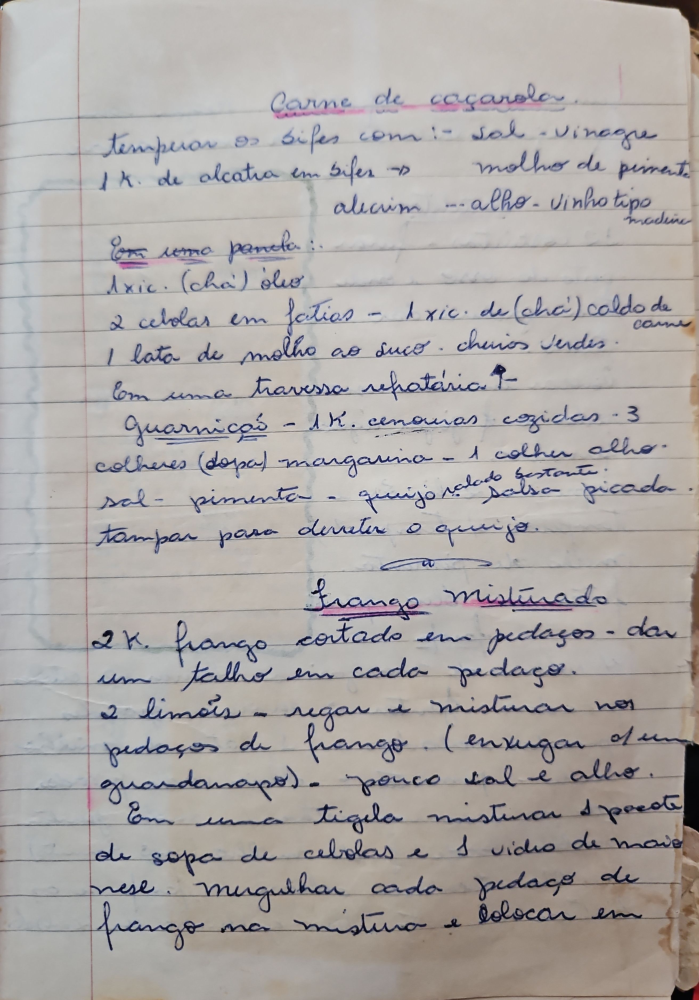 Carne de caçarola.
temperar os bifes com:- sal - vinagre
1 K. de alcatra em bifes → molho de pimenta
alecrim --- alho - vinho tipo
madeira
Em uma panela:.
1 xic. (chá) óleo
2 cebolas em fatias - 1 xic. de (chá) caldo de
carne
1 lata de molho ao suco. cheiros verdes.
Em uma travessa refratária ↑-
Guarnição - 1 K. cenouras cozidas - 3
colheres (sopa) margarina - 1 colher alho.
ralado bastante.
sal - pimenta - queijo salsa picada.
tampar para derreter o queijo.
Frango Misturado
2 K. frango cortado em pedaços - dar
um talho em cada pedaço.
2 limões - regar e misturar nos
pedaços de frango. (enxugar c/ um
guardanapo) - pouco sal e alho.
Em uma tigela misturar 1 pacote
de sopa de cebolas e 1 vidro de maio
nese. Mergulhar cada pedaço de
frango na mistura e colocar em